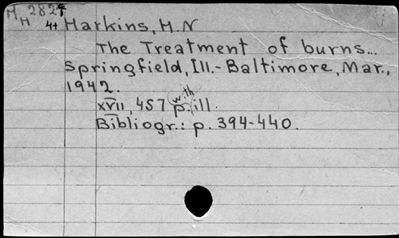 M, 2827
H 44 Harkins, H.N
The Treatment of burns...
Springfield, Ill.-Baltimore, Mar.,
1942.
XVII, 457 p. with ill.
Bibliogr.: p. 394-440.